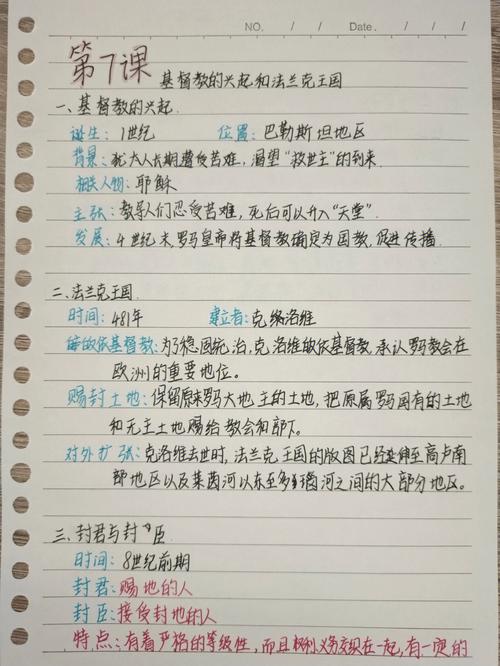 NO. / / Date. / /
第7课 基督教的兴起和法兰克王国
一、基督教的兴起
诞生：1世纪 位置：巴勒斯坦地区
背景：犹太人长期遭受苦难，渴望“救世主”的到来
相关人物：耶稣
主张：教导人们忍受苦难，死后可以升入“天堂”.
发展：4世纪末，罗马皇帝将基督教确定为国教，促进传播.
二、法兰克王国.
时间：481年 建立者：克洛维
皈依基督教：为了稳固统治，克洛维皈依基督教，承认罗马教会在
欧洲的重要地位。
赐封土地：保留原来罗马大地主的土地，把原属罗马国有的土地
和无主土地赐给教会和部下。
对外扩张：克洛维去世时，法兰克王国的版图已经延伸至高卢南
部地区以及莱茵河以东至多瑙河之间的大部分地区。
三、封君与封臣
时间：8世纪前期
封君：赐地的人
封臣：接受封地的人
特点：有着严格的等级性，而且权利义务交织在一起，有一定的